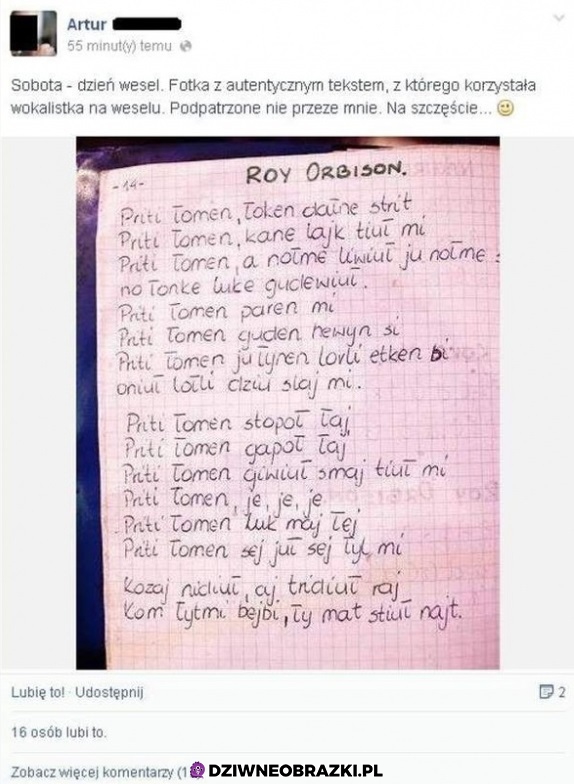 Artur
55 minut(y) temu
Sobota - dzień wesel. Fotka z autentycznym tekstem, z którego korzystała
wokalistka na weselu. Podpatrzone nie przeze mnie. Na szczęście...
-14-
ROY ORBISON.
Priti łomen, łoken dałne strit
Priti łomen, kane lajk tiuł mi
Priti łomen, a nołme liwiuł ju nołme
no łonke luke gudewiuł.
Priti łomen paren mi
Priti łomen guden hewyn si
Priti łomen ju łynen lowli etken bi
oniuł łołli dziu slaj mi.
Priti łomen stopoł łaj
Priti łomen gapoł łaj
Priti łomen giwiuł smaj tiuł mi
Priti łomen, je, je, je
Priti łomen luk maj łej
Priti łomen sej juł sej łyt mi
Kozaj nidiuł, aj tridiuł raj
Kom łytmi bejbi, ły mat stiuł najt.
Lubię to! · Udostępnij
2
16 osób lubi to.
Zobacz więcej komentarzy
DZIWNEOBRAZKI.PL